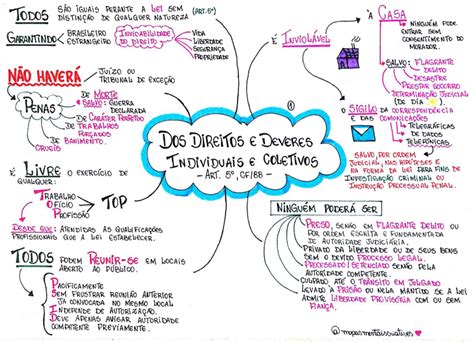 TODOS SÃO IGUAIS PERANTE A LEI SEM
DISTINÇÃO DE QUALQUER NATUREZA (ART. 5º)
GARANTINDO BRASILEIRO
ESTRANGEIRO
INVIOLABILIDADE
DO DIREITO
VIDA
LIBERDADE
SEGURANÇA
PROPRIEDADE
NÃO HAVERÁ JUÍZO OU
TRIBUNAL DE EXCEÇÃO
PENAS
DE MORTE
SALVO: GUERRA
DECLARADA
DE CARÁTER PERPÉTUO
DE TRABALHOS
FORÇADOS
DE BANIMENTO
CRUÉIS
É LIVRE O EXERCÍCIO DE
QUALQUER:
TRABALHO
OFÍCIO
PROFISSÃO
TOP
DESDE QUE: ATENDIDAS AS QUALIFICAÇÕES
PROFISSIONAIS QUE A LEI ESTABELECER.
TODOS PODEM REUNIR-SE EM LOCAIS
ABERTO AO PÚBLICO.
PACIFICAMENTE
SEM FRUSTRAR REUNIÃO ANTERIOR
JÁ CONVOCADA NO MESMO LOCAL
INDEPENDE DE AUTORIZAÇÃO.
DEVE APENAS AVISAR AUTORIDADE
COMPETENTE PREVIAMENTE.
1
DOS DIREITOS E DEVERES
INDIVIDUAIS E COLETIVOS
- ART. 5º, CF/88 -
É INVIOLÁVEL
A CASA
NINGUÉM PODE
ENTRAR SEM
CONSENTIMENTO DO
MORADOR.
SALVO: FLAGRANTE
DELITO
DESASTRE
PRESTAR SOCORRO
DETERMINAÇÃO JUDICIAL
(DE DIA)
O SIGILO DA CORRESPONDÊNCIA
E DAS COMUNICAÇÕES
TELEGRÁFICAS
DE DADOS
TELEFÔNICAS
SALVO, POR ORDEM
JUDICIAL, NAS HIPÓTESES E
NA FORMA DA LEI PARA FINS DE
INVESTIGAÇÃO CRIMINAL OU
INSTRUÇÃO PROCESSUAL PENAL.
NINGUÉM PODERÁ SER
PRESO, SENÃO EM FLAGRANTE DELITO OU
POR ORDEM ESCRITA E FUNDAMENTADA
DE AUTORIDADE JUDICIÁRIA.
PRIVADO DA LIBERDADE OU DE SEUS BENS
SEM O DEVIDO PROCESSO LEGAL.
PROCESSADO/SENTENCIADO SENÃO PELA
AUTORIDADE COMPETENTE.
CULPADO ATÉ O TRÂNSITO EM JULGADO
LEVADO À PRISÃO OU NELA MANTIDO SE A LEI
ADMITE LIBERDADE PROVISÓRIA COM OU SEM
FIANÇA.